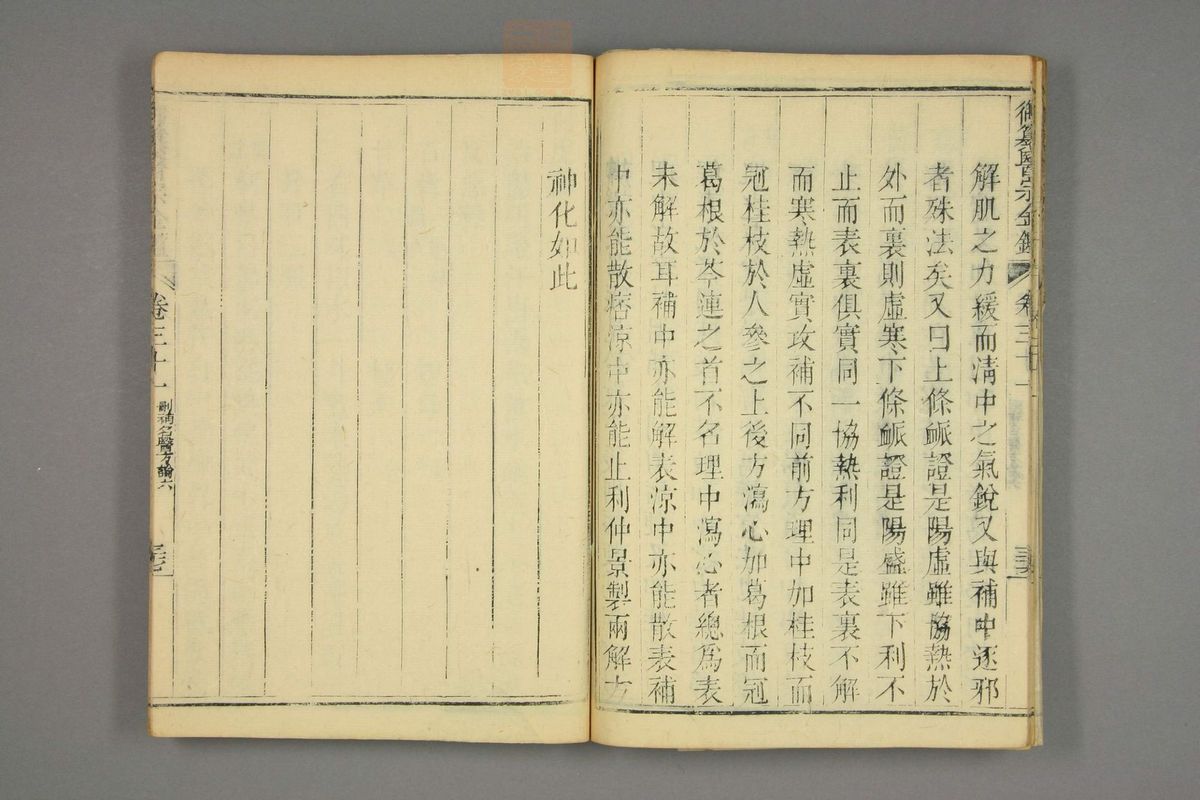 御纂醫宗金鑑
卷三十一
解肌之力緩而清中之氣銳又與補中逐邪
者殊法矣又曰上條脈證是陽虛雖協熱於
外而裏則虛寒下條脈證是陽盛雖下利不
止而表裏俱實同一協熱利同是表裏不解
而寒熱虛實攻補不同前方理中加桂枝而
冠桂枝於人參之上後方瀉心加葛根而冠
葛根於芩連之首不名理中瀉心者總爲表
未解故耳補中亦能解表涼中亦能散表補
中亦能散痞涼中亦能止利仲景製兩解方
神化如此
卷三十一
刪補名醫方論六